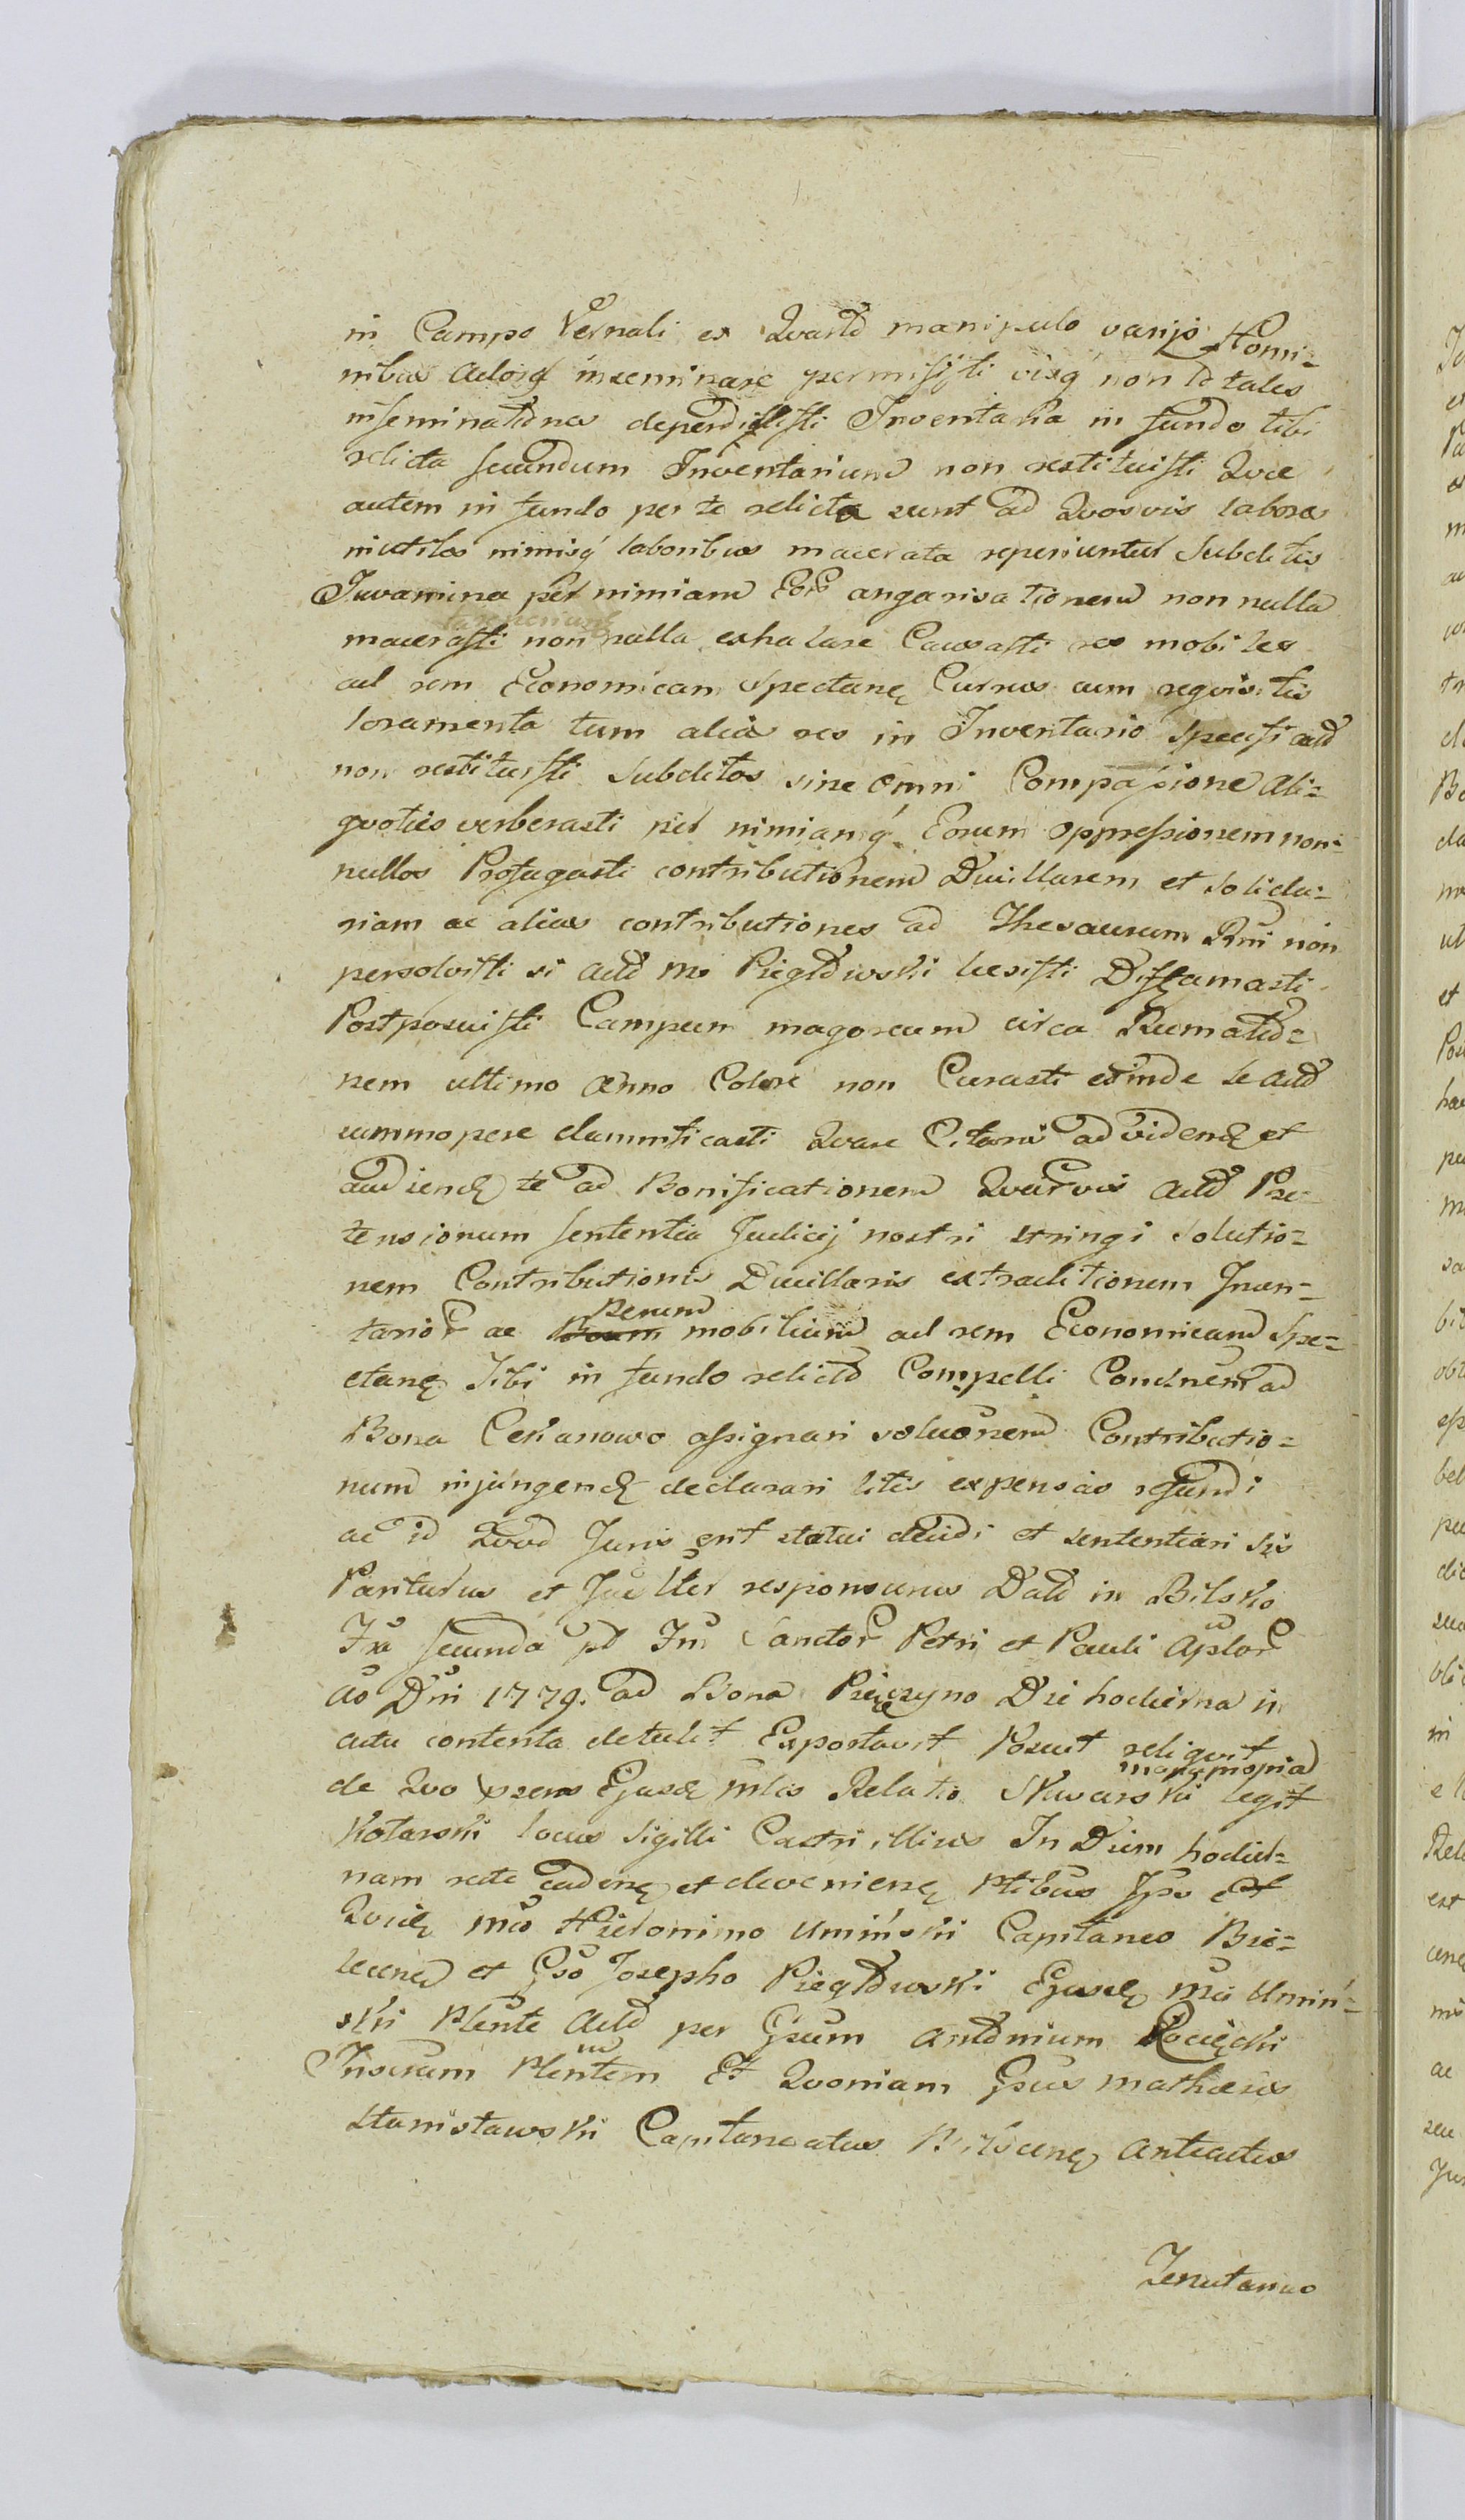 in Campo Vernali ex Quarto manipulo varijs Homi=
nibus inseminare permisisti visq non tales
inseminationes deperdidisti Inventaria in fundo tibi
relicta secundum Inventarium non restituisti Quae
autem in fundo per te relicta sunt ad Quosvis labores
inutiles nimisq laboribus macerata reperiuntur Subditis
Juvamina per nimiam Eor angarisationem non nulla
macerasti non nulla exhalare Causasti res mobiles
ad rem Economicam Spectan Currus cum requisitis
loramenta tum alias res in Inventario Specificat
non restituisti Subditos sine omni Compassione ali=
quoties verberasti per nimiamq Eorum oppressionem non=
nullos Profugasti contributionem Ducillarem et solida=
riam ac alias contributiones ad Thesaurum Rni non
persolvisti si act Piegłowski lesisti Diffamasti
Postposuisti Campum circa Rumatio=
nem ultimo anno Colere non Curasti exinde se act
summopere damnificasti Quare Citaris ad videnđ et
audienđ te ad Bonificationem Quarvis act Prae=
tensionum sententia Judicij nostri stringi solutio=
nem Contributionis Ducillaris extraditionem Inven=
tarior ac Rerum mobilium ad rem Economicam Spe=
ctanę Tibi in fundo relict Compelli ad
Bona Cekanowo assignari solucionem Contributio=
num injungenđ declarari litis expensas refundi
ac id Quod Juris erit statui decidi et sententiari sis
Pariturus et Jucliter responsurus Dat in Bilsko
Fra secunda pt Fm Sanctor Petri et Pauli Aplor
Ao Dni 1779. ad Bona Pięczyno Die hodierna in
actu contenta detulit Exportavit Posuit reliquit
de Quo prens Ejusđ mlis Relatio manu propria legit
Kotarski locus Sigilli Castri illius In Diem hodier=
nam recte cadenę et devenienę Ptibus Ipso et
mco Hieronimo Umiński Capitaneo Bie=
lscenę et Gso Josepho Piegłowski Ejusđ mci Umiń=
ski Plente Act per Gsum Antonium Rocięcki
Ptentem Et Quoniam Gsus Mathaeus
Stanisławski Capitaneatus Bilscenę Anteactus
Tenutarius